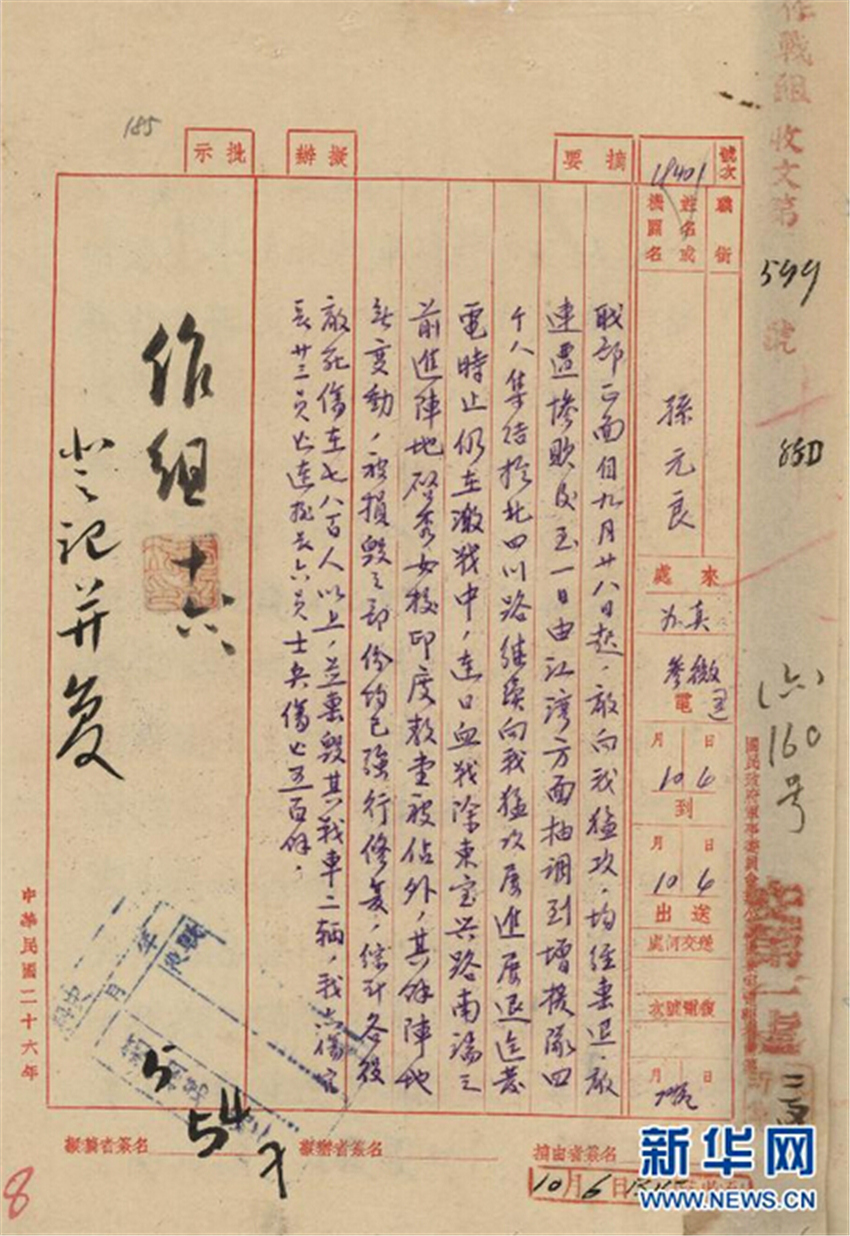 作戰組收文第
599
號
號次
18401
職銜
姓名或
機關名
孫元良
來處
電
月 日
10 6
到
月 日
10 6
送出
送交何處
復電號次
月 日
摘要
職部正面自九月廿八日起,敵向我猛攻,均經擊退,敵
連遭慘敗後至一日由江灣方面抽調到增援隊四
千人集結於北四川路繼續向我猛攻屢進屢退迄發
電時止仍在激戰中,連日血戰除東寶興路南端之
前進陣地啓秀女校印度教堂被佔外,其餘陣地
無變動,被損毀之部份均已強行修復,綜計各役
敵死傷在七八百人以上,並轟毀其戰車二輛,我亦傷官
長廿三員亡連排長六員士兵傷亡五百餘,
擬辦
批示
185
作組
十六
登記并复
中華民國二十六年
160号
擬稿者簽名
擬辦者簽名
摘由者簽名
10月6日
8
新华网
WWW.NEWS.CN